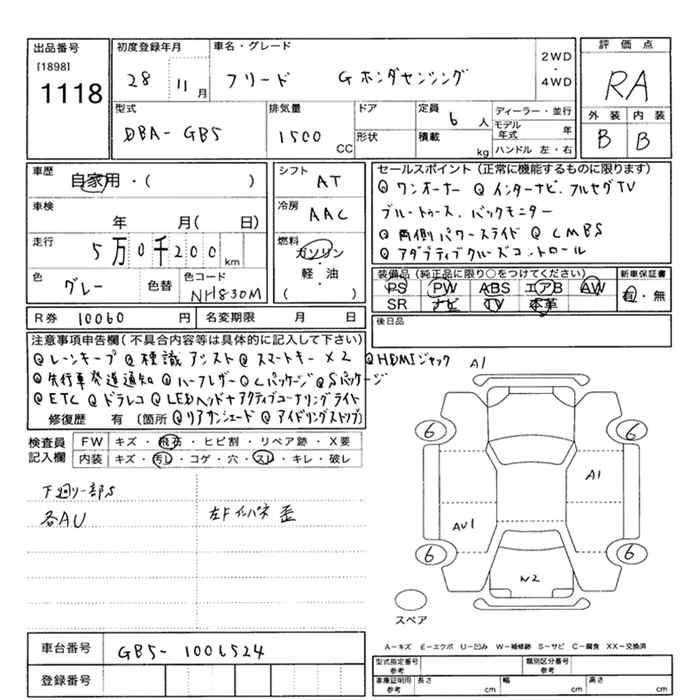 出品番号 初度登録年月 車名・グレード 2WD・4WD 評価点
[1898]
1118 28 11月 フリード Gホンダセンシング RA
型式 排気量 ドア 定員 ディーラー・並行 外装 内装
DBA-GB5 1500 CC 形状 6人 モデル年式 年 B B
積載 kg ハンドル 左・右
車歴 シフト セールスポイント(正常に機能するものに限ります)
自家用・( ) AT ◎ワンオーナー ◎インターナビ.フルセグTV
車検 冷房 ブルートゥース.バックモニター
年 月( 日) AAC ◎両側パワースライド ◎CMBS
走行 燃料 ◎アダプティブクルーズコントロール
5万0千200km ガソリン・軽・油( )
装備品(純正品に限り○をつけてください) 新車保証書
色 グレー 色替 色コード NH830M
PS PW ABS エアB AW 有・無
SR ナビ TV 本革
R券 10060円 名変期限 月 日 後日品
注意事項申告欄(不具合内容等は具体的に記入して下さい)
◎レーンキープ ◎標識アシスト ◎スマートキー×2 ◎HDMIジャック
◎先行車発進通知 ◎ハーフレザー ◎Cパッケージ ◎Sパッケージ
◎ETC ◎ドラレコ ◎LEDヘッド+アクティブコーナリングライト
修復歴 有(箇所 ◎リアサンシェード ◎アイドリングストップ)
検査員記入欄 FW キズ・飛石・ヒビ割・リペア跡・X要
内装 キズ・汚レ・コゲ・穴・スレ・キレ・破レ
下廻り一部S
各AU 左Fインパネ歪
A1
6 6
A1
AU1
6 6
N2
スペア
A-キズ E-エクボ U-凹み W-補修跡 S-サビ C-腐食 XX-交換済
車台番号 GB5-1006524
型式指定番号 参考 類別区分番号 参考
登録番号
車庫証明用 参考 長さ cm 幅 cm 高さ cm